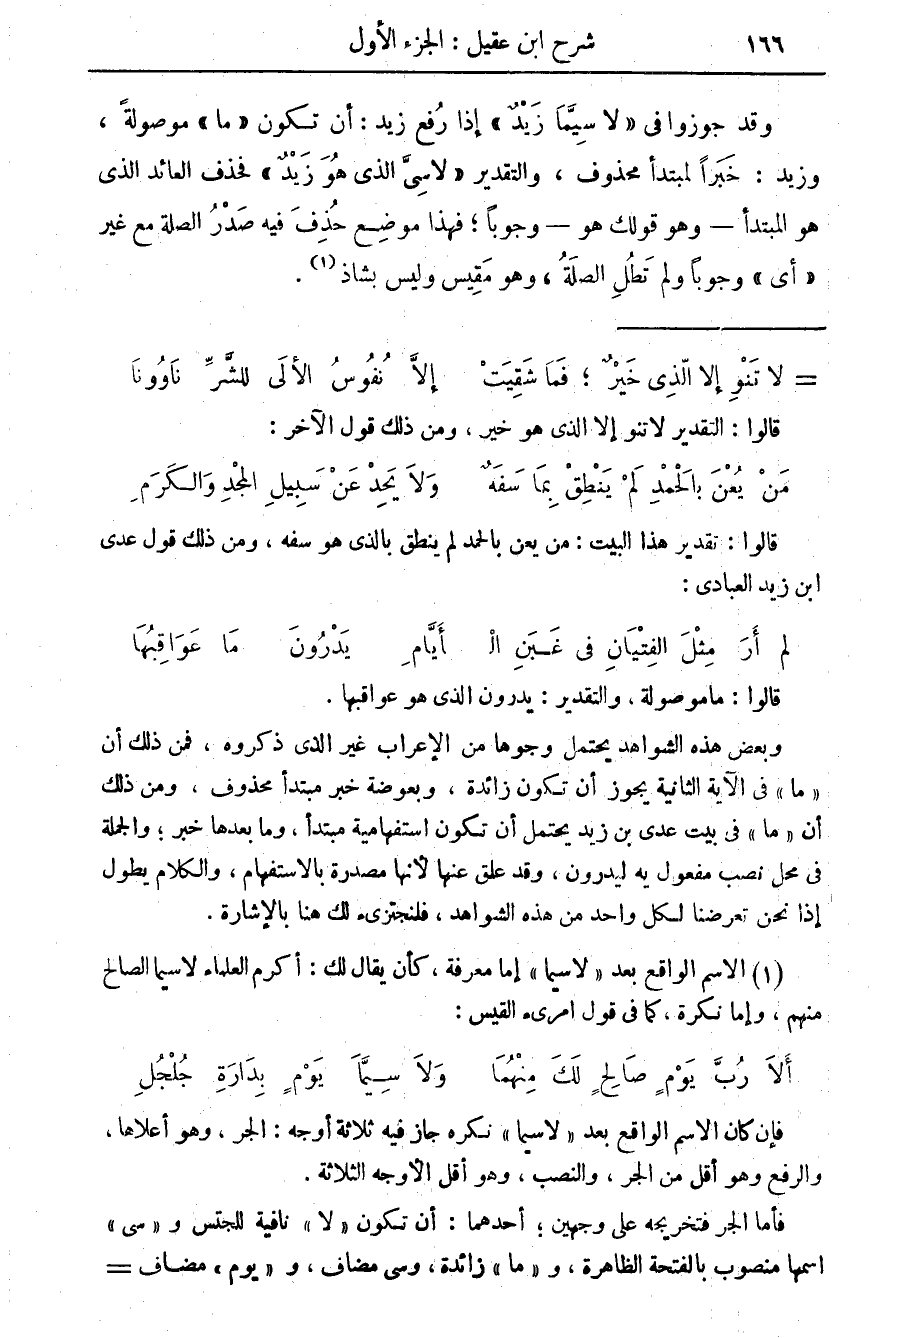 ١٦٦ شرح ابن عقيل : الجزء الأول
وقد جوزوا فى « لا سِيَّمَا زَيْدٌ » إذا رُفع زيد : أن تكون « ما » موصولةً ،
وزيد : خَبَراً لمبتدأ محذوف ، والتقدير « لاسِىَّ الذى هُوَ زَيْدٌ » فحذف العائد الذى
هو المبتدأ — وهو قولك هو — وجوباً ؛ فهذا موضع حُذِفَ فيه صَدْرُ الصلة مع غير
« أى » وجوباً ولم تَطُلِ الصلَةُ ، وهو مَقِيس وليس بشاذ (١) .
= لا تَنْوِ إلا الّذِى خَيْرٌ ؛ فَمَا شَقِيَتْ إلاَّ نُفُوسُ الأُلَى للشَّرِّ نَاوُونَا
قالوا : التقدير لاتنو إلا الذى هو خير ، ومن ذلك قول الآخر :
مَنْ يُعْنَ بِالْحَمْدِ لَمْ يَنْطِقْ بِمَا سَفَهٌ وَلاَ يَحِدْ عَنْ سَبِيلِ المَجْدِ وَالكَرَمِ
قالوا : تقدير هذا البيت : من يعن بالحمد لم ينطق بالذى هو سفه ، ومن ذلك قول عدى
ابن زيد العبادى :
لم أَرَ مِثْلَ الفِتْيَانِ فى غَبَنِ الْ أَيَّامِ يَدْرُونَ مَا عَوَاقِبُهَا
قالوا : ماموصولة ، والتقدير : يدرون الذى هو عواقبها .
وبعض هذه الشواهد يحتمل وجوها من الإعراب غير الذى ذكروه ، فمن ذلك أن
« ما » فى الآية الثانية يجوز أن تكون زائدة ، وبعوضة خبر مبتدأ محذوف ، ومن ذلك
أن « ما » فى بيت عدى بن زيد يحتمل أن تكون استفهامية مبتدأ ، وما بعدها خبر ؛ والجملة
فى محل نصب مفعول به ليدرون ، وقد علق عنها لأنها مصدرة بالاستفهام ، والكلام يطول
إذا نحن تعرضنا لكل واحد من هذه الشواهد ، فلنجتزىء لك هنا بالإشارة .
(١) الاسم الواقع بعد « لاسيما » إما معرفة ، كأن يقال لك : أكرم العلماء لاسيما الصالح
منهم ، وإما نكرة ، كما فى قول امرىء القيس :
أَلاَ رُبَّ يَوْمٍ صَالِحٍ لَكَ مِنْهُمَا وَلاَ سِيَّمَا يَوْمٍ بِدَارَةِ جُلْجُلِ
فإن كان الاسم الواقع بعد « لاسيما » نكره جاز فيه ثلاثة أوجه : الجر ، وهو أعلاها ،
والرفع وهو أقل من الجر ، والنصب ، وهو أقل الأوجه الثلاثة .
فأما الجر فتخريجه على وجهين ؛ أحدهما : أن تكون « لا » نافية للجنس و « سى »
اسمها منصوب بالفتحة الظاهرة ، و « ما » زائدة ، وسى مضاف ، و « يوم » مضاف =